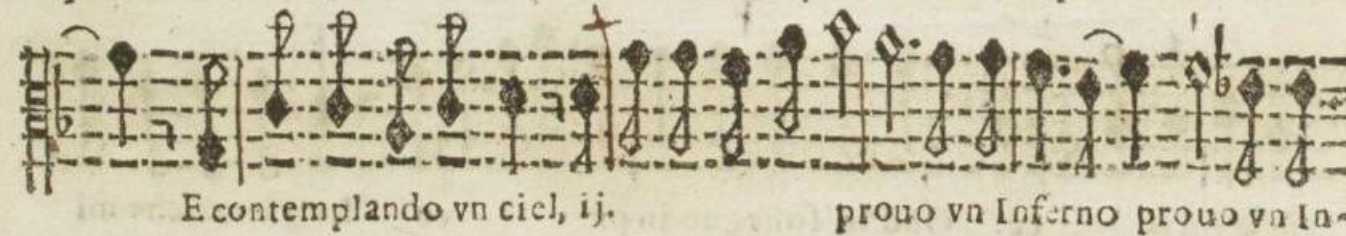 E contemplando vn ciel, ij. prouo vn Inferno prouo vn In-